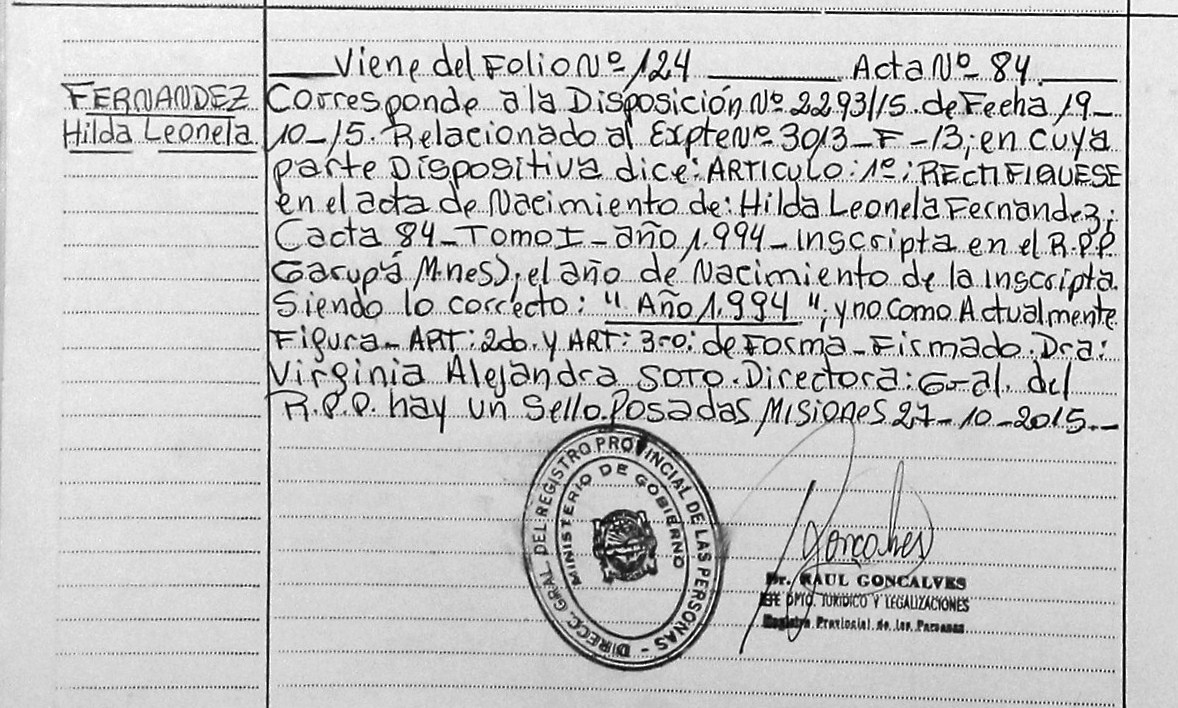 Viene del Folio Nº 124 Acta Nº 84.
FERNANDEZ
Hilda Leonela
Corresponde a la Disposición Nº 2293/15. de Fecha 19-
10-15. Relacionado al Expte Nº 3013-F-13; en cuya
parte Dispositiva dice: ARTICULO: 1º: RECTIFIQUESE
en el acta de Nacimiento de: Hilda Leonela Fernandez;
Cacta 84-Tomo I-año 1.994-Inscripta en el R.P.P.
Garupá Mnes); el año de Nacimiento de la inscripta.
Siendo lo correcto: "Año 1.994"; y no como Actualmente
Figura-ART: 2do. y ART: 3ro: de Forma-Firmado. Dra:
Virginia Alejandra SOTO. Directora: Gral. del
R.P.P. hay un Sello. Posadas Misiones 27-10-2015.-
DIRECC. GRAL DEL REGISTRO PROVINCIAL DE LAS PERSONAS -
MINISTERIO DE GOBIERNO
Goncalves
Dr. RAUL GONCALVES
JEFE DPTO. JURIDICO Y LEGALIZACIONES
Registro Provincial de las Personas